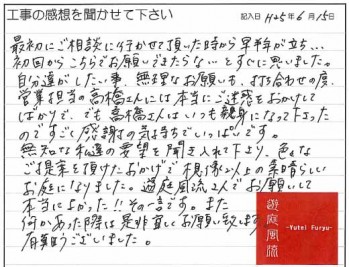 工事の感想を聞かせて下さい
記入日 H25年6月15日
最初にご相談に行かせて頂いた時から早半年が立ち…
初回からこちらでお願いできたらな〜とすぐに思いました。
自分達がしたい事、無理なお願いも、打ち合わせの度、
営業担当の高橋さんには本当にご迷惑をおかけして
ばかりで、でも高橋さんはいつも親身になって下さった
のですごく感謝の気持ちでいっぱいです。
無知な私達の要望を聞き入れて下さり、色々な
ご提案を頂けたおかげで想像以上の素晴らしい
お庭になりました。遊庭風流さんでお願いして
本当によかった!!その一言です。また
何かあった際は是非宜しくお願い致します。
有難うございました。
遊庭風流
-Yutei Furyu-